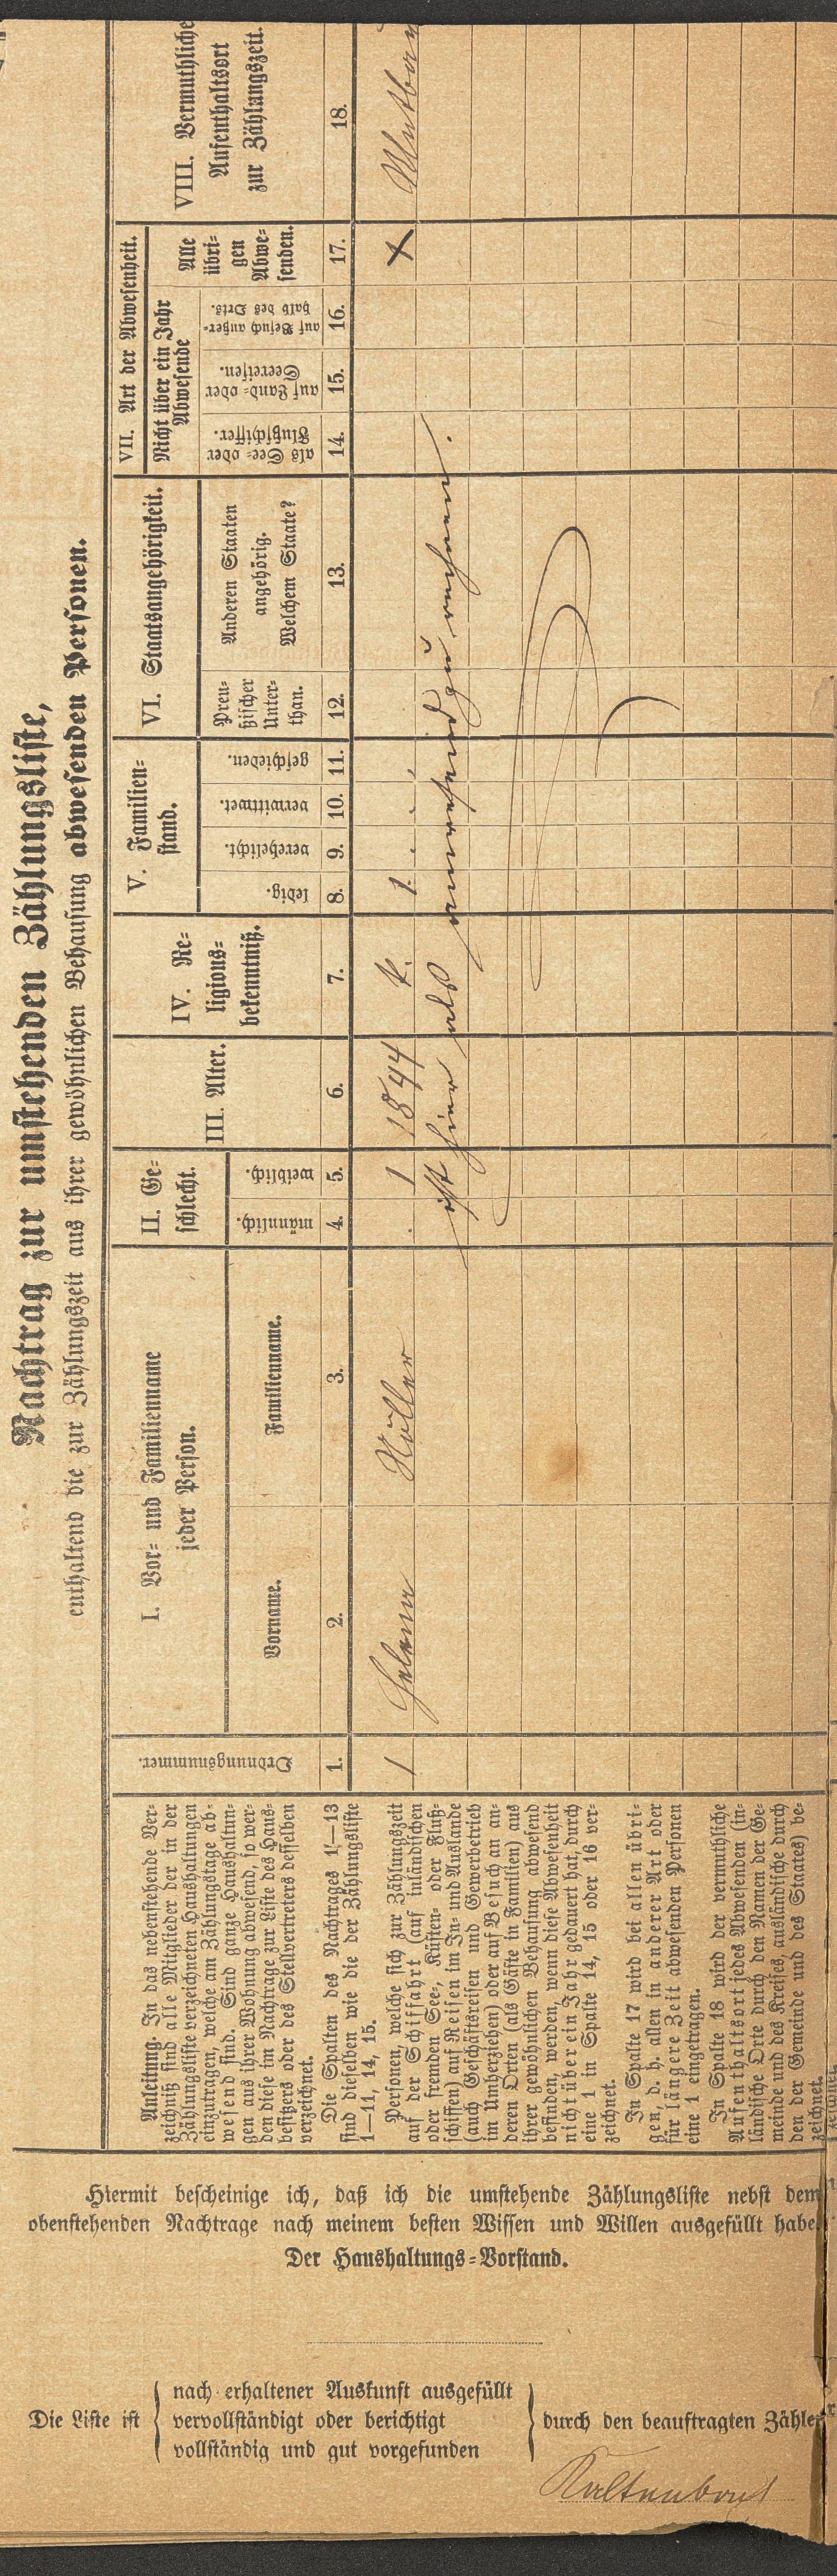 Nachtrag zur umstehenden Zählungsliste,
enthaltend die zur Zählungszeit aus ihrer gewöhnlichen Behausung abwesenden Personen.
Anleitung. In das nebenstehende Ver-
zeichniß sind alle Mitglieder der in der
Zählungsliste verzeichneten Haushaltungen
einzutragen, welche am Zählungstage ab-
wesend sind. Sind ganze Haushaltun-
gen aus ihrer Wohnung abwesend, so wer-
den diese im Nachtrage zur Liste des Haus-
besitzers oder des Stellvertreters desselben
verzeichnet.
Die Spalten des Nachtrages 1—13
sind dieselben wie die der Zählungsliste
1—11, 14, 15.
Personen, welche sich zur Zählungszeit
auf der Schiffahrt (auf inländischen
oder fremden See-, Küsten- oder Fluß-
schiffen) auf Reisen im In- und Auslande
(auch Geschäftsreisen und Gewerbetrieb
im Umherziehen) oder auf Besuch an an-
deren Orten (als Gäste in Familien) aus
ihrer gewöhnlichen Behausung abwesend
befinden, werden, wenn diese Abwesenheit
nicht über ein Jahr gedauert hat, durch
eine 1 in Spalte 14, 15 oder 16 ver-
zeichnet.
In Spalte 17 wird bei allen übri-
gen, d. h. allen in anderer Art oder
für längere Zeit abwesenden Personen
eine 1 eingetragen.
In Spalte 18 wird der vermuthliche
Aufenthaltsort jedes Abwesenden (in-
ländische Orte durch den Namen der Ge-
meinde und des Kreises, ausländische durch
den der Gemeinde und des Staates) be-
zeichnet.
Ordnungsnummer.
1.
I. Vor- und Familienname
jeder Person.
Vorname.
2.
Familienname.
3.
II. Ge-
schlecht.
männlich.
4.
weiblich.
5.
III. Alter.
6.
IV. Re-
ligions-
bekenntniß.
7.
V. Familien-
stand.
ledig.
8.
verehelicht.
9.
verwittwet.
10.
geschieden.
11.
VI. Staatsangehörigkeit.
Preu-
ßischer
Unter-
than.
12.
Anderen Staaten
angehörig.
Welchem Staate?
13.
VII. Art der Abwesenheit.
Nicht über ein Jahr
Abwesende
als See- oder
Flußschiffer.
14.
auf Land- oder
Seereisen.
15.
auf Besuch außer-
halb des Orts.
16.
Alle
übri-
gen
Abwe-
senden.
17.
VIII. Vermuthlicher
Aufenthaltsort
zur Zählungszeit.
18.
1 Helena Höller . 1 1844 k. 1. . . . X
ist hier als anwesend zu nehmen.
Hiermit bescheinige ich, daß ich die umstehende Zählungsliste nebst dem
obenstehenden Nachtrage nach meinem besten Wissen und Willen ausgefüllt habe
Der Haushaltungs-Vorstand.
Die Liste ist
nach erhaltener Auskunft ausgefüllt
vervollständigt oder berichtigt
vollständig und gut vorgefunden
durch den beauftragten Zähler